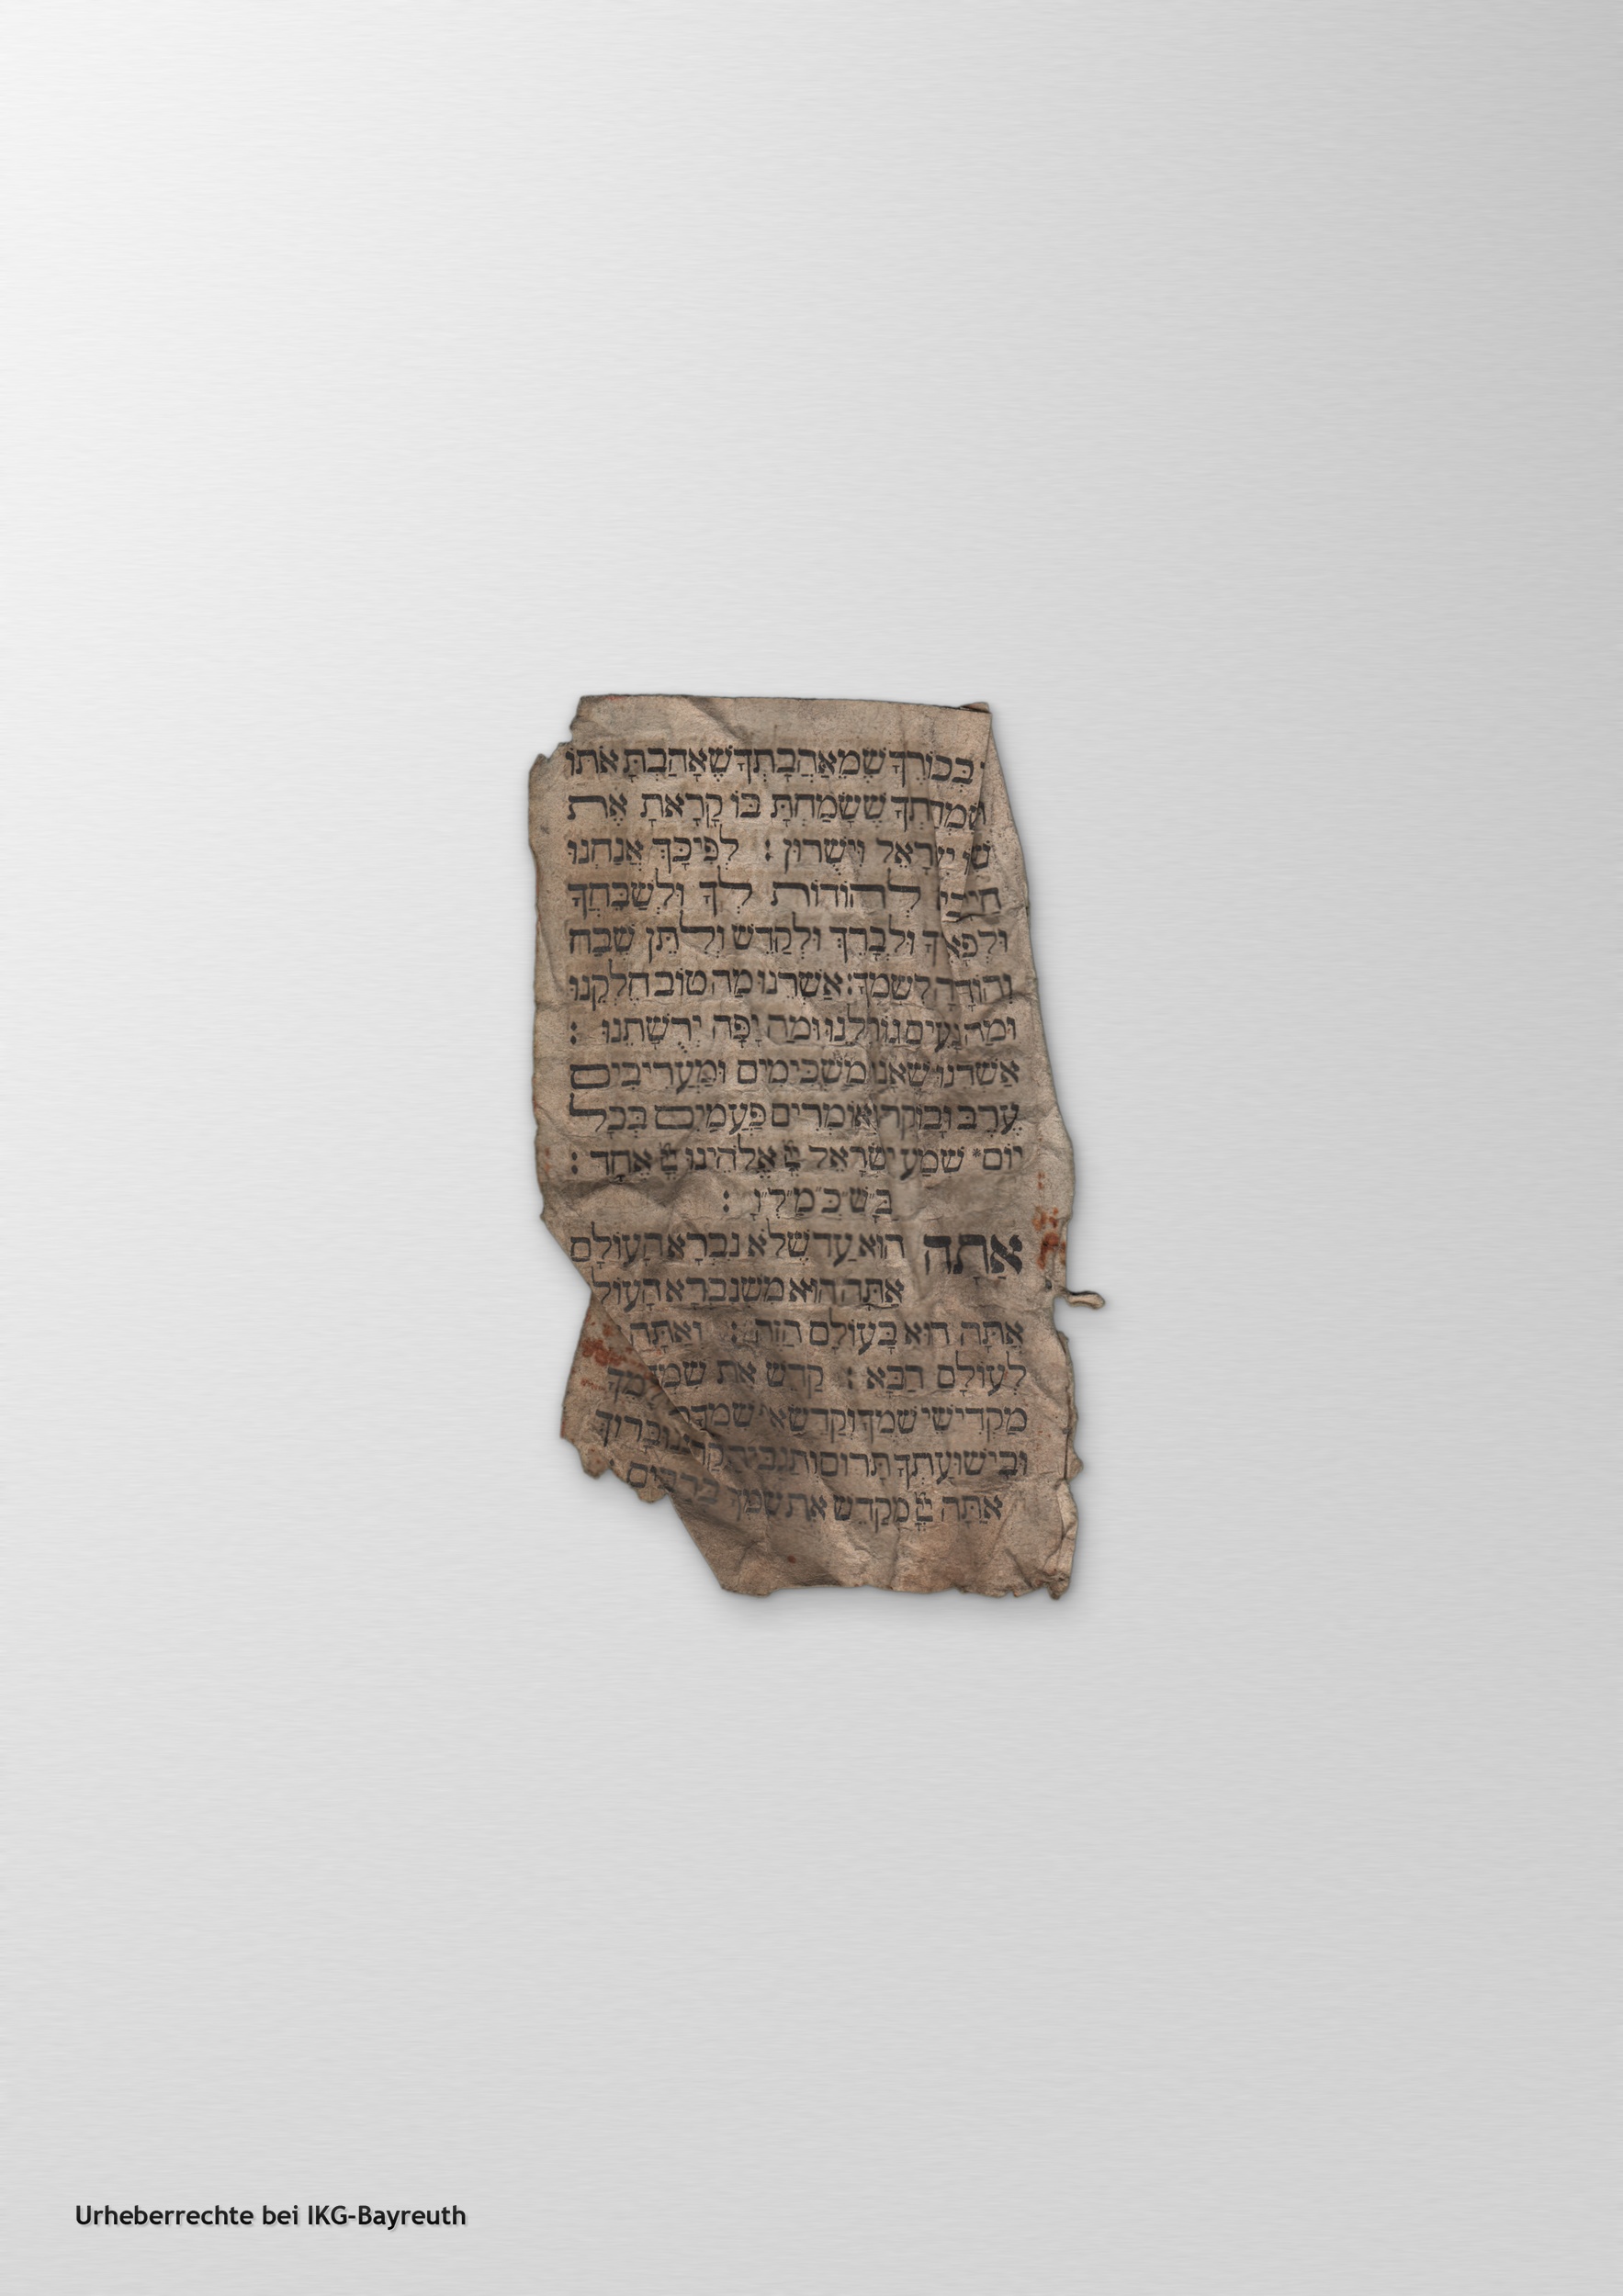 בְּכוֹרֶךָ שֶׁמֵאַהֲבָתְךָ שֶׁאָהַבְתָּ אֹתוֹ
שֶׁשָׂמַחְתָּ בּוֹ קָרָאתָ אֶת
יִשְׂרָאֵל וִישֻׁרוּן : לְפִיכָךְ אֲנַחְנוּ
לְהוֹדוֹת לְךָ וּלְשַׁבֵּחֲךָ
וּלְבָרֵךְ וּלְקַדֵשׁ וְלִתֵּן שֶׁבַח
וְהוֹדָיָה לִשְׁמֶךָ : אַשְׁרֵנוּ מַה טוֹב חֶלְקֵנוּ
וּמַה נָעִים גוֹרָלֵנוּ וּמַה יָפָה יְרֻשָׁתֵנוּ :
אַשְׁרֵנוּ שֶׁאָנוּ מַשְׁכִּימִים וּמַעֲרִיבִים
עֶרֶב וָבוֹקֶר וְאוֹמְרִים פַּעֲמַיִם בְּכָל
יוֹם שְׁמַע יִשְׂרָאֵל יְיָ אֱלֹהֵינוּ יְיָ אֶחָד :
בָּ״שֵׁ״כְּ״מַ״לְ״וָ :
אַתָּה הוּא עַד שֶׁלֹא נִבְרָא הָעוֹלָם
אַתָּה הוּא מִשֶׁנִבְרָא הָעוֹלָ
אַתָּה הוּא בָּעוֹלָם הַזֶה : וְאַתָּה
לָעוֹלָם הַבָּא : קַדֵשׁ אֶת שִׁמְךָ
מַקְדִישֵׁי שְׁמֶךָ וְקַדֵשׁ
וּבִישׁוּעָתְךָ תָּרוּם וְתַגְבִּיהַּ קַרְנֵנוּ בָּרוּךְ
אַתָּה יְיָ מְקַדֵשׁ אֶת שִׁמְךָ בָּרַבִּים
Urheberrechte bei IKG-Bayreuth